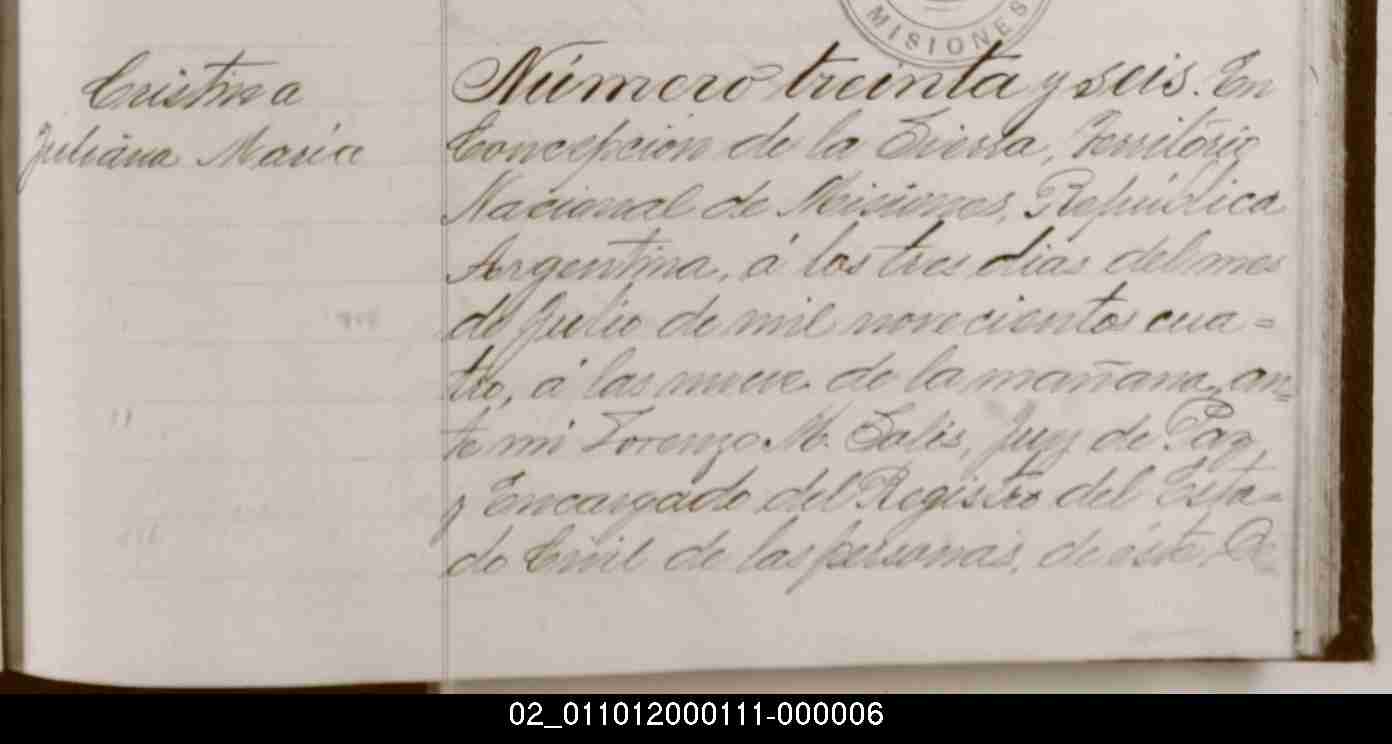 MISIONES
Cristina
Juliana María
Número treinta y seis. En
Concepción de la Sierra, Território
Nacional de Misiones, República
Argentina, á los tres dias del mes
de Julio de mil novecientos cua=
tro, á las nueve de la mañana, an=
te mi Lorenzo M. Solis, Juez de Paz
y Encargado del Registro del Esta=
do Civil de las personas, de éste De
02_011012000111-000006